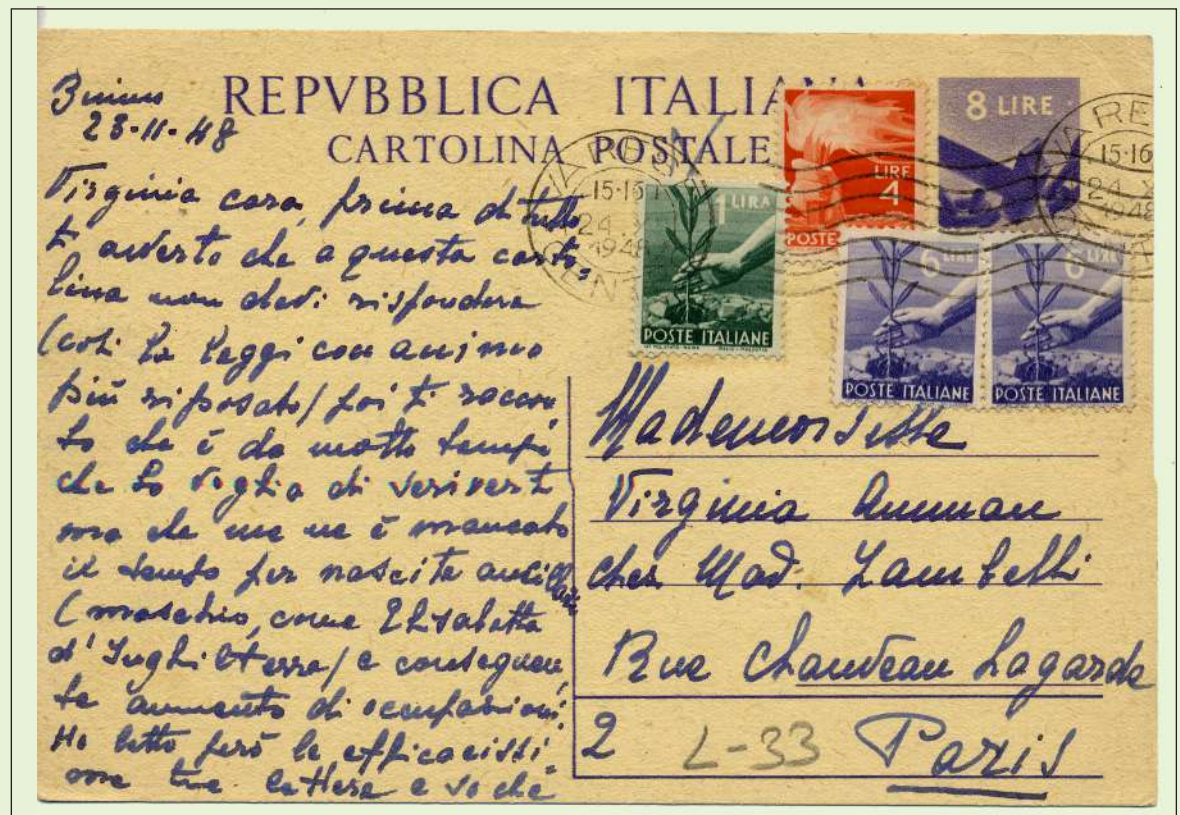 REPVBBLICA ITALIANA
CARTOLINA POSTALE
8 LIRE
LIRE
4
POSTE
1 LIRA
POSTE ITALIANE
6 LIRE
POSTE ITALIANE
6 LIRE
POSTE ITALIANE
VARESE
15-16
24 X
1948
CENTRO
VARE
15-16
24 X
1948
23-11-48
Virginia cara, prima di tutto
ti avverto che a questa carto=
lina non devi rispondere
(così la leggi con animo
più riposato) poi ti raccon
to che è da molto tempo
che ho voglia di scriverti
ma che me ne è mancato
il tempo per nascita
(maschio, come Elisabetta
d'Inghilterra) e conseguen
te aumento di occupazioni.
Ho letto però le efficacissi=
me tue lettere e so che
Mademoiselle
Virginia Amman
chez Mad. Zambelli
Rue Chauveau Lagarde
2
L-33
Paris